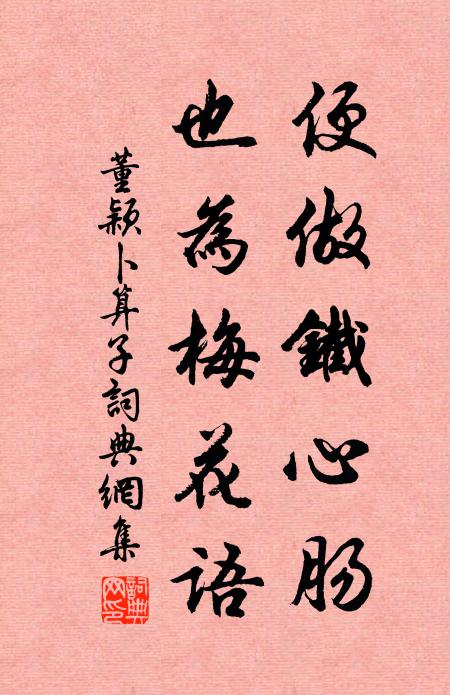 便做鐵心肠
也為梅花語
董颖卜算子詞典網集
詞典網印